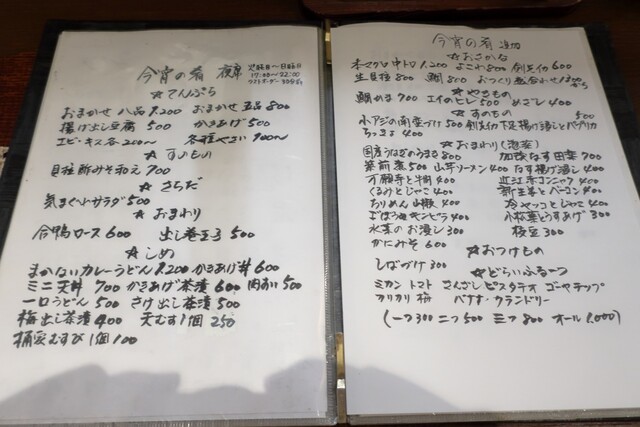 今宵の肴 夜席 火曜日〜日曜日
17:00〜22:00
ラストオーダー30分前
☆てんぷら
おまかせ 八品 1,200 おまかせ 五品 800
揚げ出し豆腐 500 かきあげ 500
エビ・キス各200〜 各種やさい 100〜
☆すのもの
貝種酢みそ和え 700
☆さらだ
気まぐれサラダ 500
☆おまわり
合鴨ロース 600 出し巻玉子 500
☆しめ
まかないカレーうどん 1,200 かきあげ丼 600
ミニ天丼 700 かきあげ茶漬 600 肉吸い 500
一口うどん 500 さけ出し茶漬 500
梅出し茶漬 400 天むす1個 250
むすび1個 100
今宵の肴 追加
☆おさかな
本マグロ中トロ 1,200 よこわ 800 剣先イカ 600
生貝種 800 鯛 800 おつくり盛合わせ 1300から
☆やきもの
鯛かま 700 エイのヒレ 500 めざし 400
☆すのもの
小アジの南蛮づけ 500 剣先イカ下足揚げ浸しとパプリカ 500
400
☆おまわり(惣菜)
国産うなぎのうまき 800 加茂なす田楽 700
筑前煮 500 山芋ソーメン 400 なす揚げ浸し 400
万願寺と 400 近江赤コンニャク 400
くるみとじゃこ 400 新玉葱とベーコン 400
ちりめん山椒 400 冷ヤッコとじゃこ 400
ごぼうのキンピラ 400 小松菜とうすあげ 300
水菜のお浸し 300 枝豆 300
かにみそ 600
☆おつけもの
しばづけ 300
☆どらいふるーつ
ミカン トマト さんざし ピスタチオ ゴーヤチップ
カリカリ梅 バナナ・クランベリー
(一つ300 二つ500 三つ800 オール1,000)